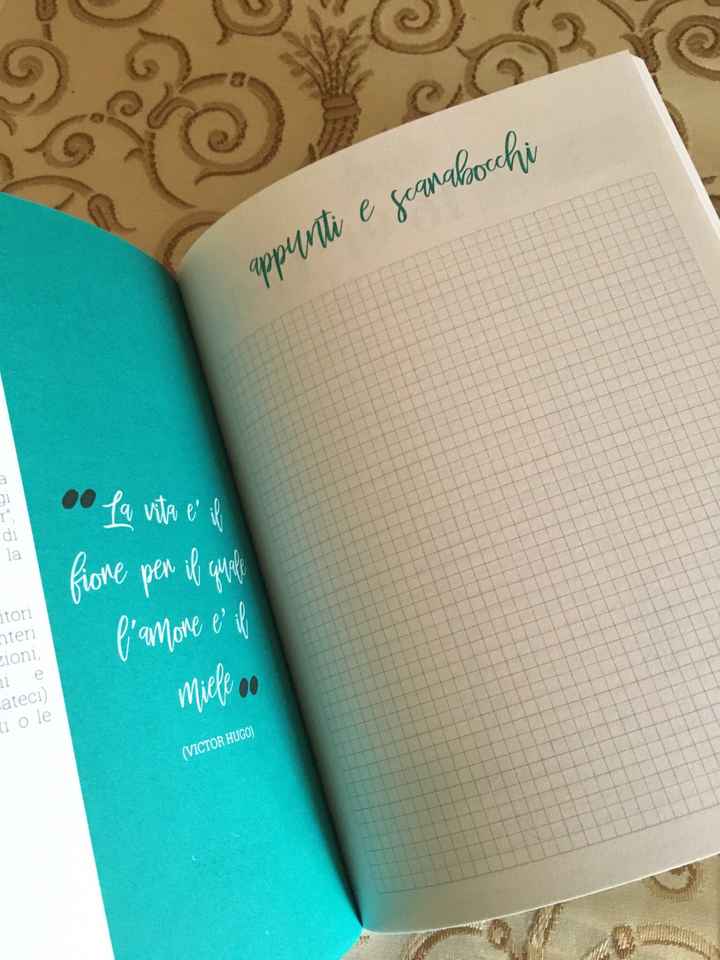 gi
r",
di
la
itori
nteri
zioni,
ni e
ateci)
ti o le
" La vita e' il
fiore per il quale
l'amore e' il
miele "
(VICTOR HUGO)
appunti e scarabocchi